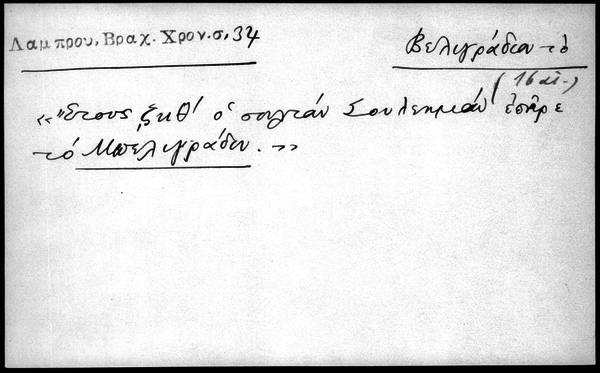 Λαμπρου, Βραχ. Χρον. σ. 34
Βελιγράδιν τό
(16 αἰ.)
«Ἔτους ͵ζκθ´ ὁ σουλτάν Σουλεημάν ἐπῆρε
τό Μπελιγράδιν.»